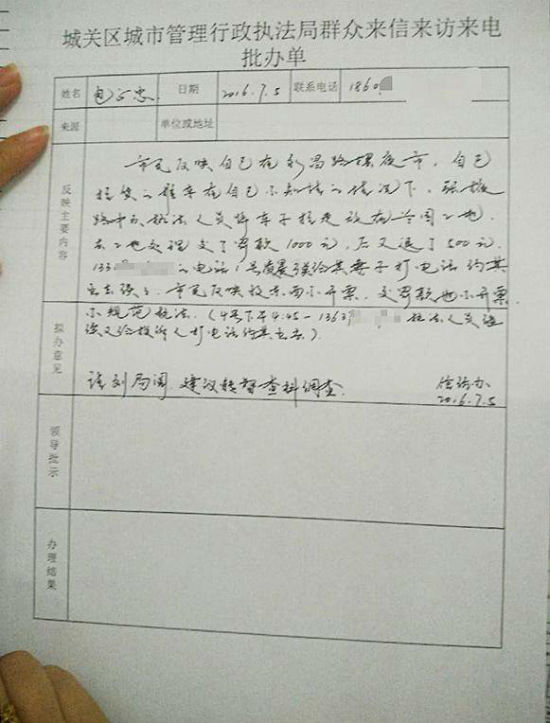 城关区城市管理行政执法局群众来信来访来电
批办单
姓名 日期 2016.7.5 联系电话 1860
来源 单位或地址
反映主要内容
市民反映自己在永昌路摆夜市，自己
车在自己不知情的情况下，张掖
路中队执法人员将车子拉走放在兰园工地，
在工地处理交了罚款1000元，后又退了500元，
133 电话1号 给其妻子打电话约其
出去谈，市民反映收东西不开票，交罚款也不开票
不规范执法。（4号下午4:45-1363 执法人员
又给投诉人打电话约其出去）
拟办意见
请刘局阅 建议转督查科调查
信访办
2016.7.5
领导批示
办理结果